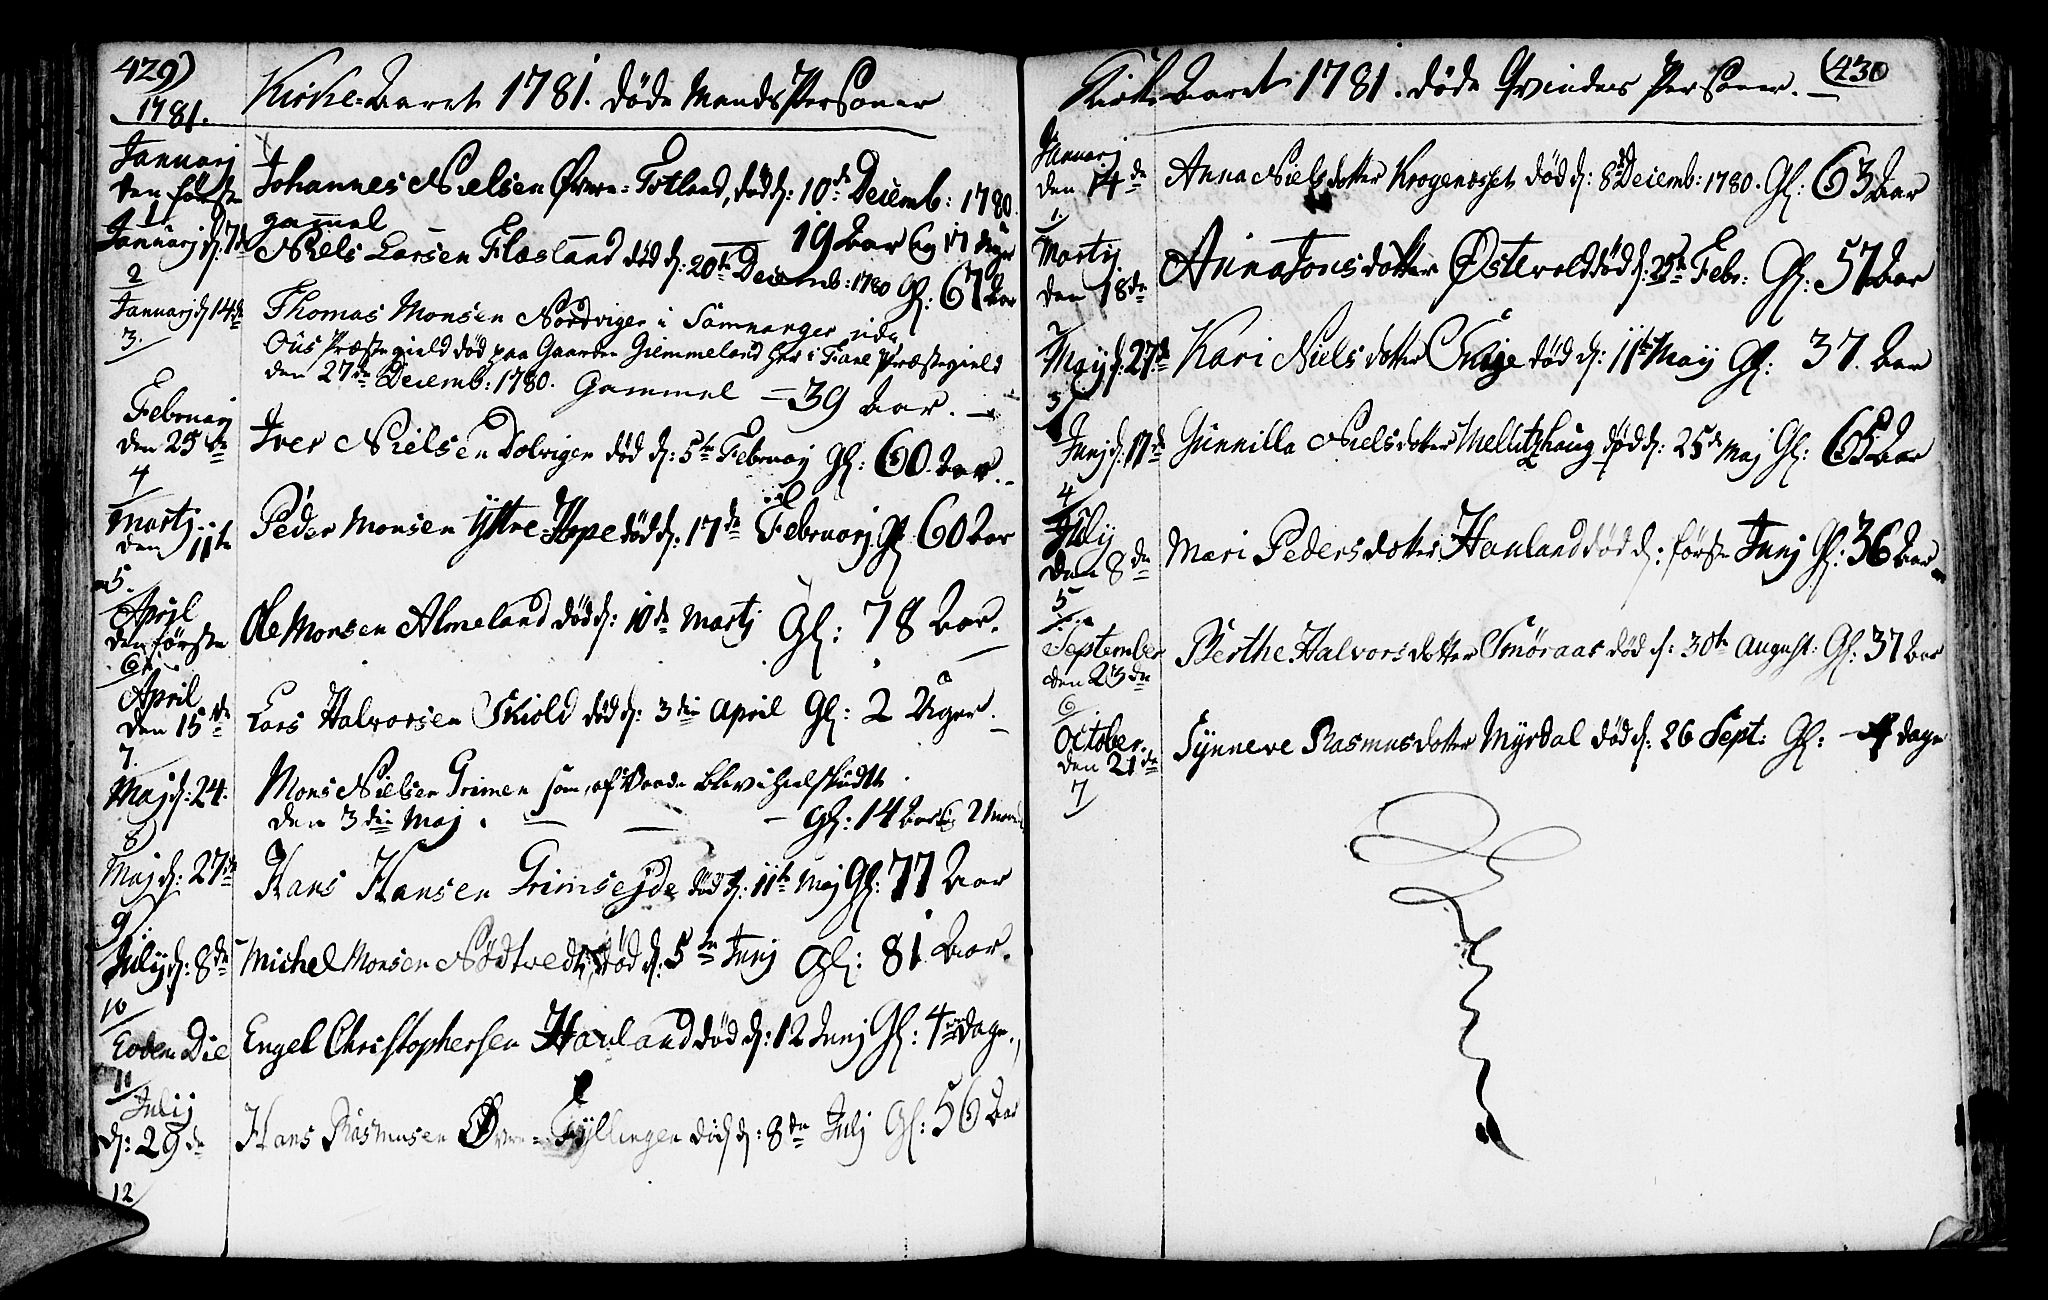 429)
1781.
Kirke-Aaret 1781. døde Mands Personer
Januarj
den første
1
Johannes Nielsen Øvre-Totland, død d: 10de Decemb: 1780.
gammel — 19 Aar og 11 Uger
Januarj d: 7de
2
Niels Larsen Flæsland død d: 20de Decemb: 1780 Gl: 67 Aar
Januarj d 14de
3.
Thomas Monsen Nordvigen i Samnanger udj
Ous Præstegield død paa Gaarden Giemmeland her i Fane Præstegield
den 27de Decemb: 1780. Gammel — 39 Aar. —
Februarj
den 25de
4
Iver Nielsen Dolvigen død d: 5te Februarj Gl: 60 Aar. —
Martj
den 11te
5.
Peder Monsen Yttre-Hope død d: 17de Februarj Gl 60 Aar
April
den første
6
Ole Monsen Almeland død d: 10de Martj Gl: 78 Aar.
April
den 15de
7.
Lars Halvorsen Skiold død d: 3die April Gl: 2 Uger. —
Maj d: 24.
8
Mons Nielsen Grimen som af Vaade blev ihielskudt
den 3die Maj. — — — Gl: 14 Aar og 2 Maan
Maj d: 27de
9
Hans Hansen Grimsejde død d: 11te Maj Gl: 77 Aar
July d: 8de
10
Michel Monsen Nødtvedt, død d: 5te Junj Gl: 81 Aar.
Eodem Die
11
Engel Christophersen Hauland død d: 12 Junj Gl: 4re Dage.
Julij
d: 29de
12
Hans Rasmusen Øvre-Fyllingen død d: 8de Julj Gl: 56 Aar
(430
Kirke-Aaret 1781. døde Qvindes Personer. —
Januarj
den 14de
1
Anna Nielsdotter Krogenesset død d: 8de Decemb: 1780. Gl: 63 Aar
Martij
den 18de
2
Anna Jonsdotter Østevold død d: 25de Febr: Gl: 57 Aar
Maij d: 27de
3
Kari Nielsdotter Skeje død d: 11te Maij Gl: 37. Aar
Junj d: 17de
4
Gunnilla Nielsdotter Mellitzhaug død d: 25de Maj Gl: 65 Aar
July
den 8de
5
Mari Pedersdotter Hauland død d: første Junj Gl: 36 Aar
September
den 23de
6
Berthe Halvorsdotter Smøraas død d: 30te August: Gl: 37 Aar
October.
den 21de
7
Synneve Rasmusdotter Myrdal død d: 26 Sept: Gl: — 4 Dage